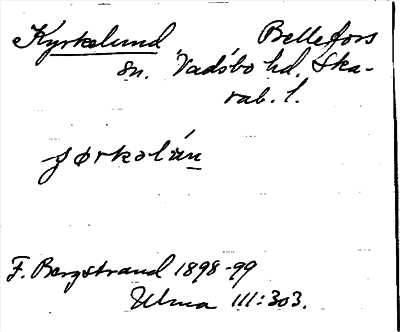 Kyrkelund Bellefors
sn. Vadsbo hd. Ska-
rab. l.
F. Bergstrand 1898-99
Ulma III:303.